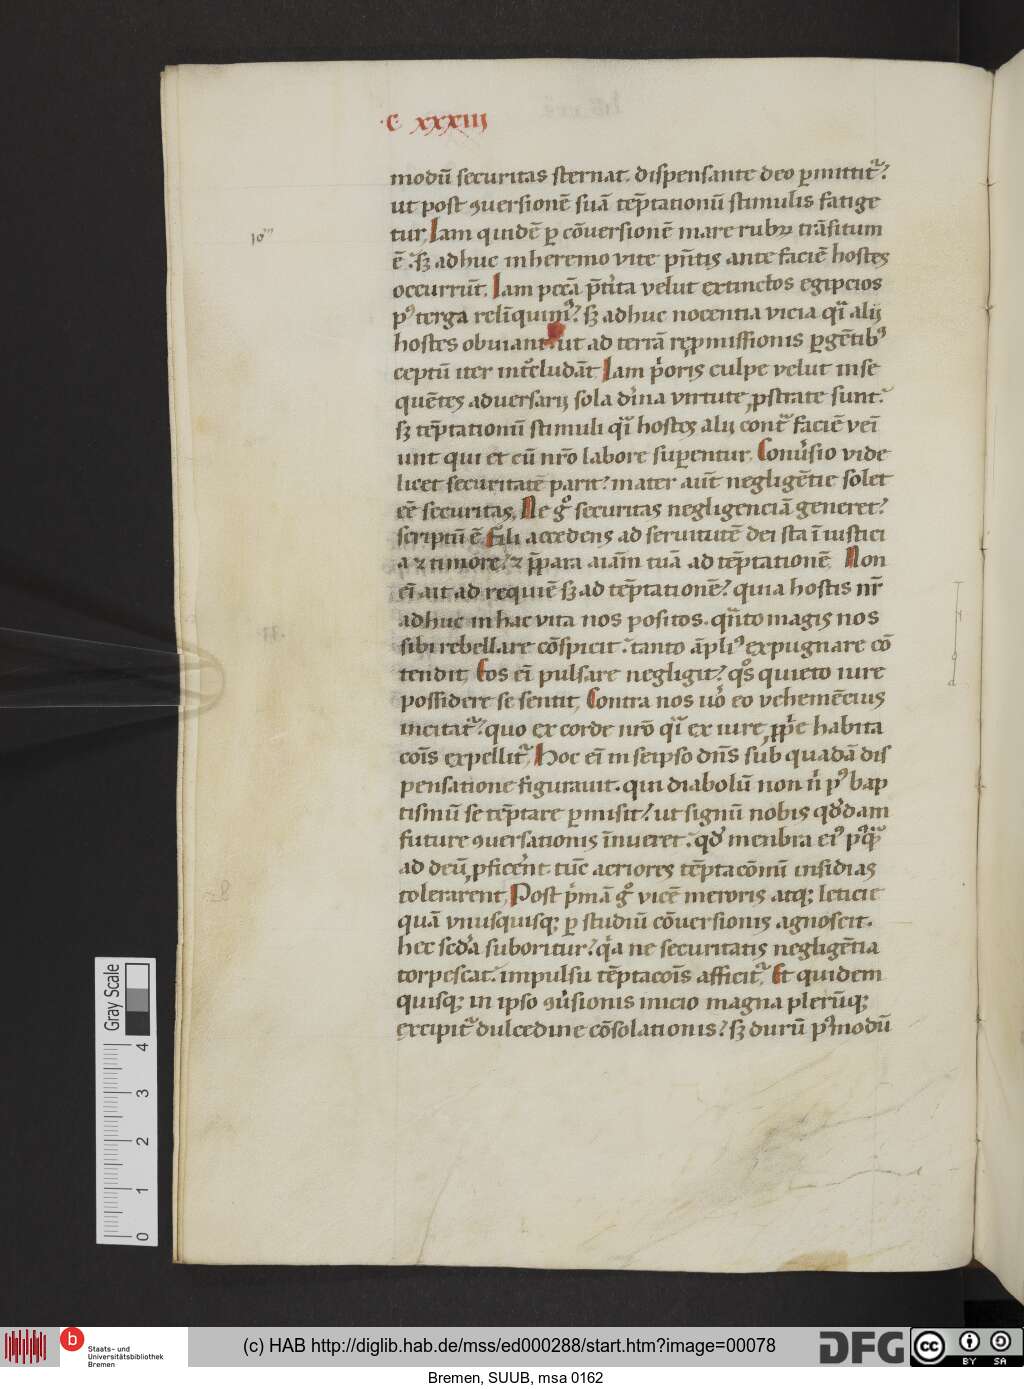 .C. xxxiii
modū securitas sternat. dispensante deo ꝑmittit᷑?
ut post ꝯuersionē suā tēptationū stimulis fatige
tur. Iam quidē ꝑ cōuersionē mare rubꝝ trāsitum
ē. sꝫ adhuc in heremo vite p̄ntis ante faciē hostes
occurrūt. Iam pccā p̄tita velut extinctos egipcios
pꝰ terga relīquimꝰ? sꝫ adhuc nocentia vicia qͣi alij
hostes obuiant. ut ad terrā rep̱missionis ꝑgētibꝰ
ceptū iter int᷑cludāt. Iam p̍oris culpe velut inse
quētes aduersarij sola diͥna virtute ꝓstrate sunt.
sꝫ tēptationū stimuli qͣi hostes alij cont᷑ faciē veī
unt qui et cū nr̄o labore suꝑentur. Conuͥsio vide
licet securitatē parit? mater aut̄ negligētie solet
eē securitas. Ne gͦ securitas negligenciā generet?
scriptū ē. Fili accedens ad seruitutē dei sta ī iustici
a ⁊ timore? ⁊ p̄para aiām tuā ad tēptationē. Non
eī ait ad requiē sꝫ ad tēptationē? quia hostis nr̄
adhuc in hac vita nos positos. qn̄to magis nos
sibi rebellare cōspicit. tanto āpliꝰ expugnare cō
tendit. Eos eī pulsare negligit? qͦs quieto iure
possidere se sentit. Contra nos uͦ eo vehemēcius
incitat᷑? quo ex corde nr̄o qͣi ex iure ꝓprͥe habita
cōis expellit᷑. Hoc eī in seipso dn̄s sub quadā dis
pensatione figurauit. qui diabolū non nͥ pꝰ bap
tismū se tēptare ꝑmisit? ut signū nobis qd̓dam
future ꝯuersationis īnueret. qd̓ menbra eiꝰ pꝰqͣ
ad deū ꝓficerent. tūc acriores tēptacōnū insidias
tolerarent. Post pͥmā gͦ vicē meroris atqꝫ leticie
quā vnusquisqꝫ ꝑ studiū cōuersionis agnoscit.
hec sedͣa suboritur? qͣa ne securitatis negligētia
torpescat. impulsu tēptacōis afficit᷑. Et quidem
quisqꝫ in ipso ꝯuͥsionis inicio magna plerūqꝫ
excipit᷑ dulcedine cōsolationis? sꝫ durū pꝰmodū
Gray Scale
4
3
2
1
0
Staats- und
Universitätsbibliothek
Bremen
(c) HAB http://diglib.hab.de/mss/ed000288/start.htm?image=00078
DFG
cc BY SA
Bremen, SUUB, msa 0162